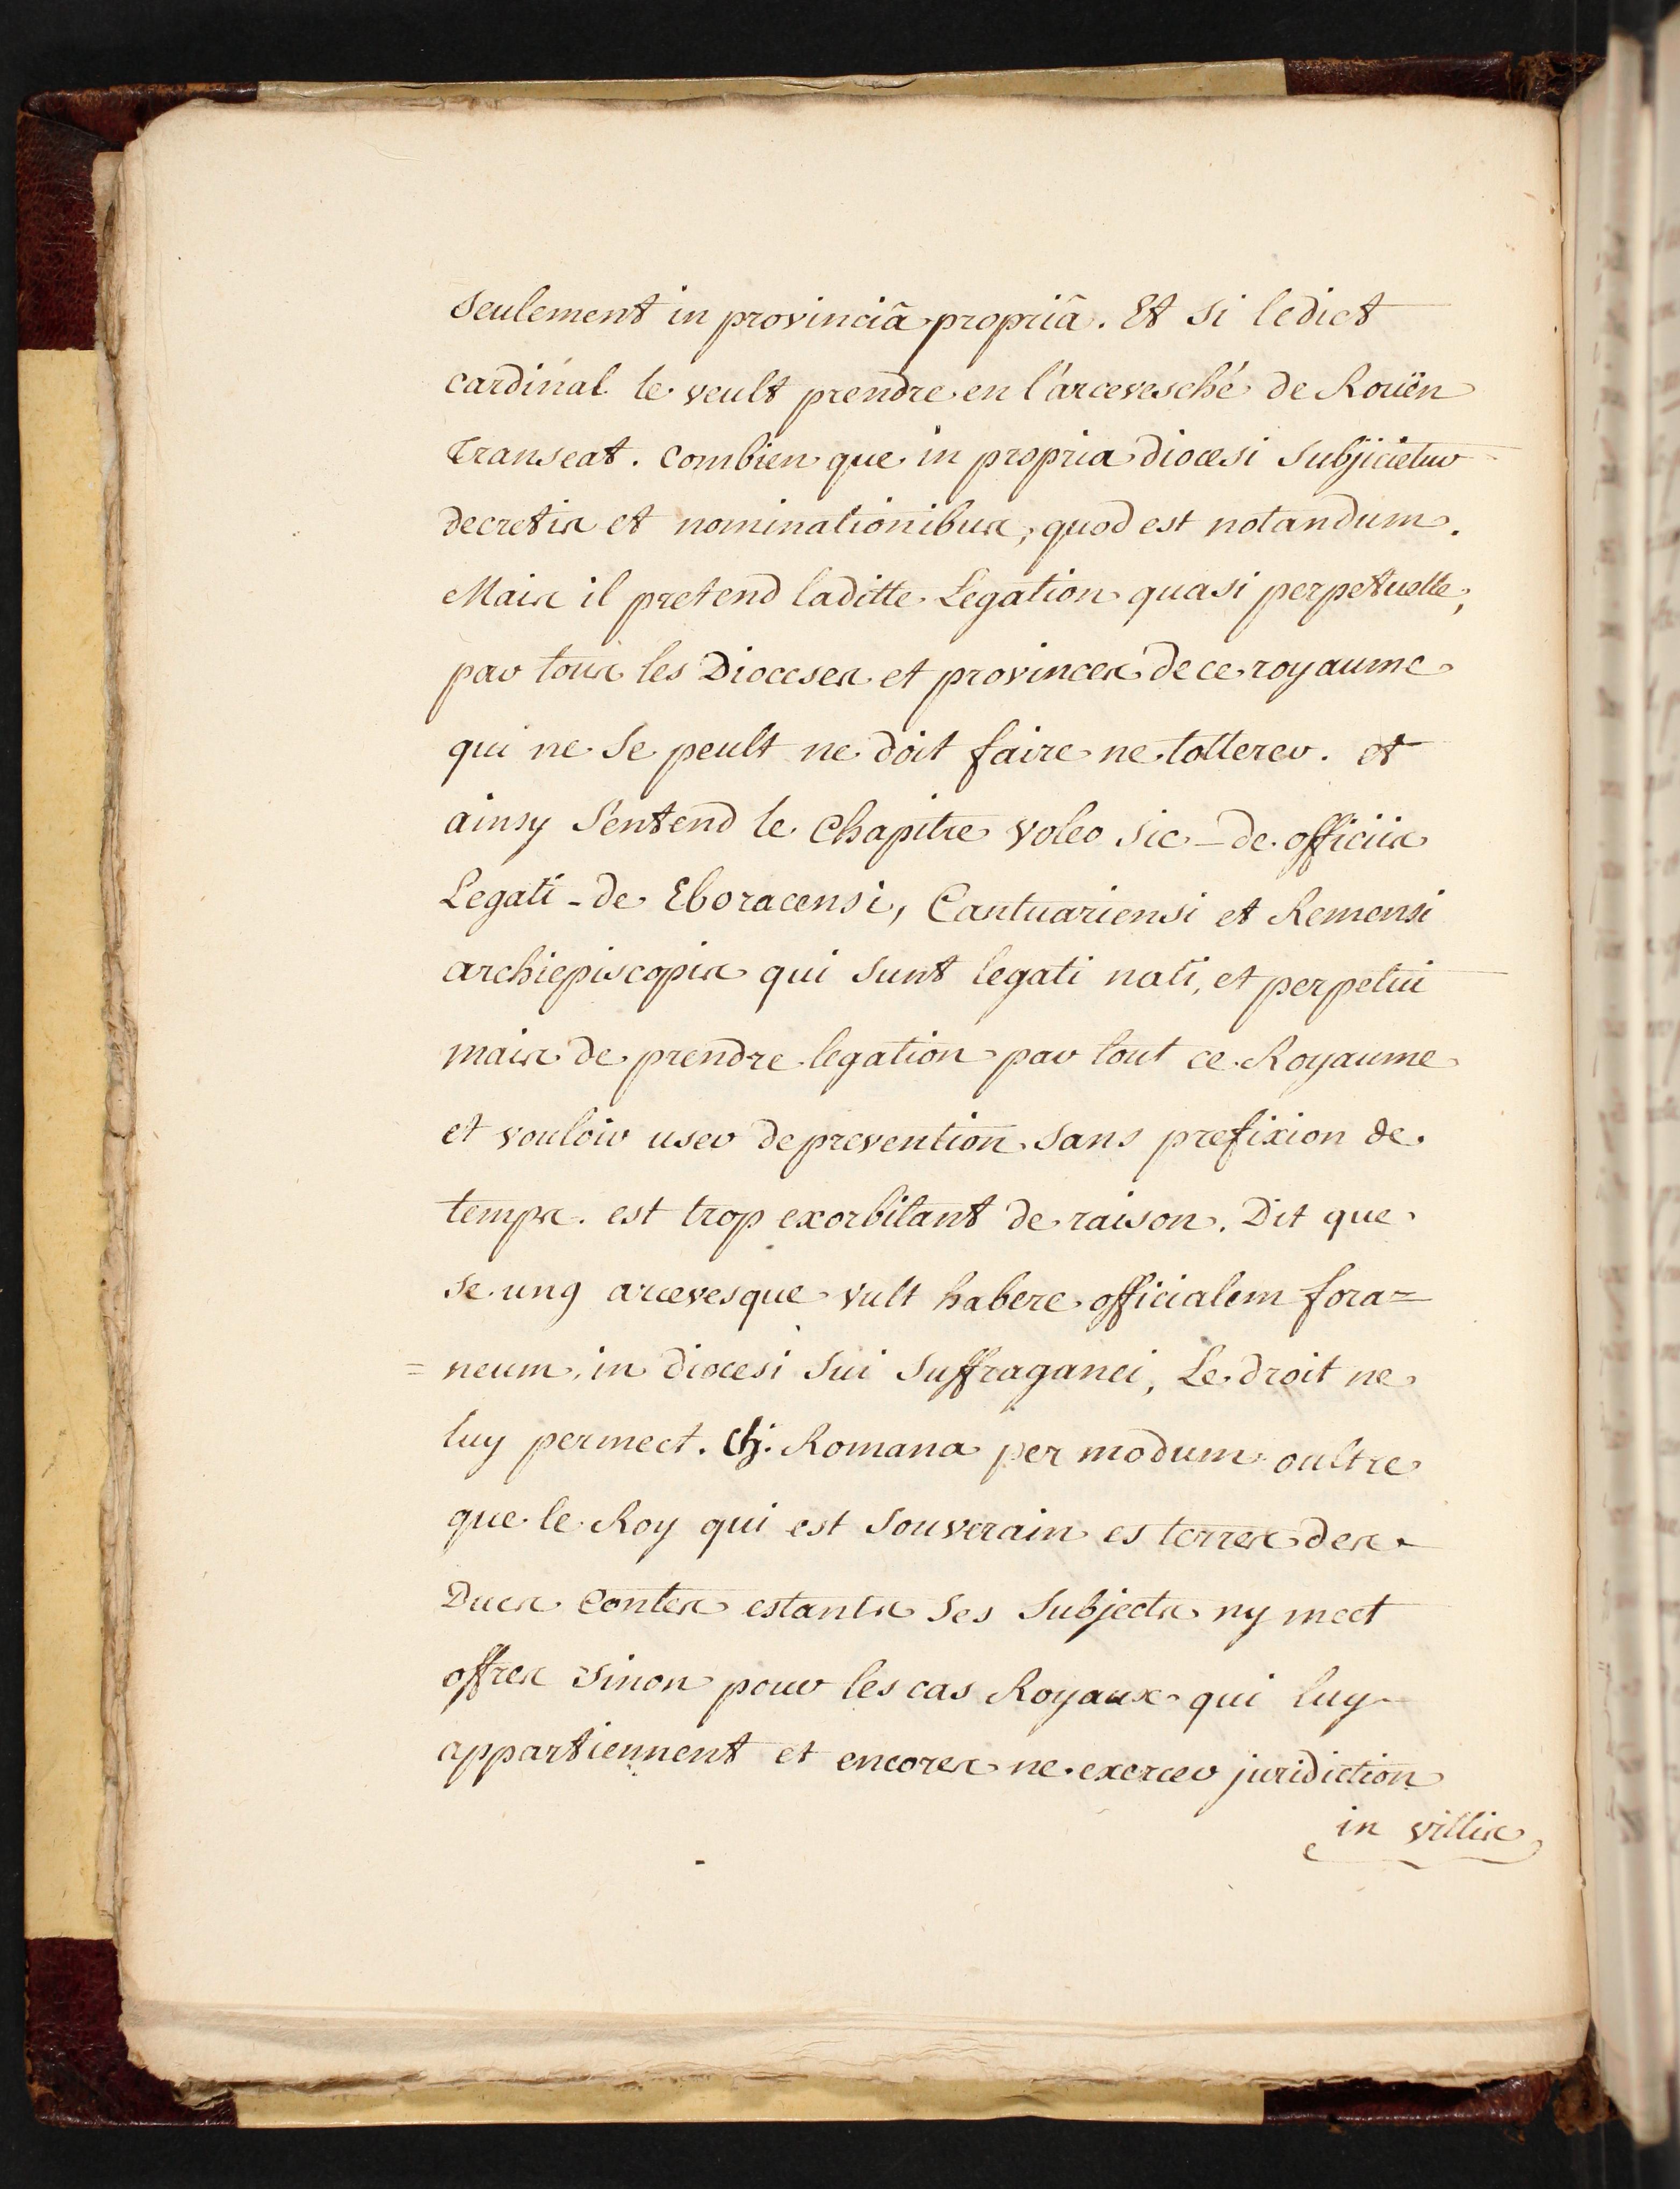 seulement in provinciâ propriâ. Et si ledict
cardinal le veult prendre en l'arcevesché de Roüen
transeat. combien que in propria diocesi subjicietur
decretis et nominationibus, quod est notandum.
Mais il pretend laditte Legation quasi perpetuelle,
par tous les Dioceses et provinces de ce royaume
qui ne se peult ne doit faire ne tollerer. et
ainsy s'entend le chapitre volo sic – de officiis
Legati – de Eboracensi, Cantuariensi et Remensi
archiepiscopis qui sunt legati nati, et perpetui
mais de prendre legation par tout ce Royaume
et vouloir user de prevention sans prefixion de
temps. est trop exorbitant de raison. Dit que
se ung arcevesque vult habere officialem fora=
= neum in diocesi sui suffraganei, Le droit ne
luy permect. Ch. Romana per modum oultre
que le Roy qui est souverain es terres des
Ducs Contes estants ses subjects ny mect
offres sinon pour les cas Royaux qui luy
appartiennent et encores ne exercer juridiction
in villis